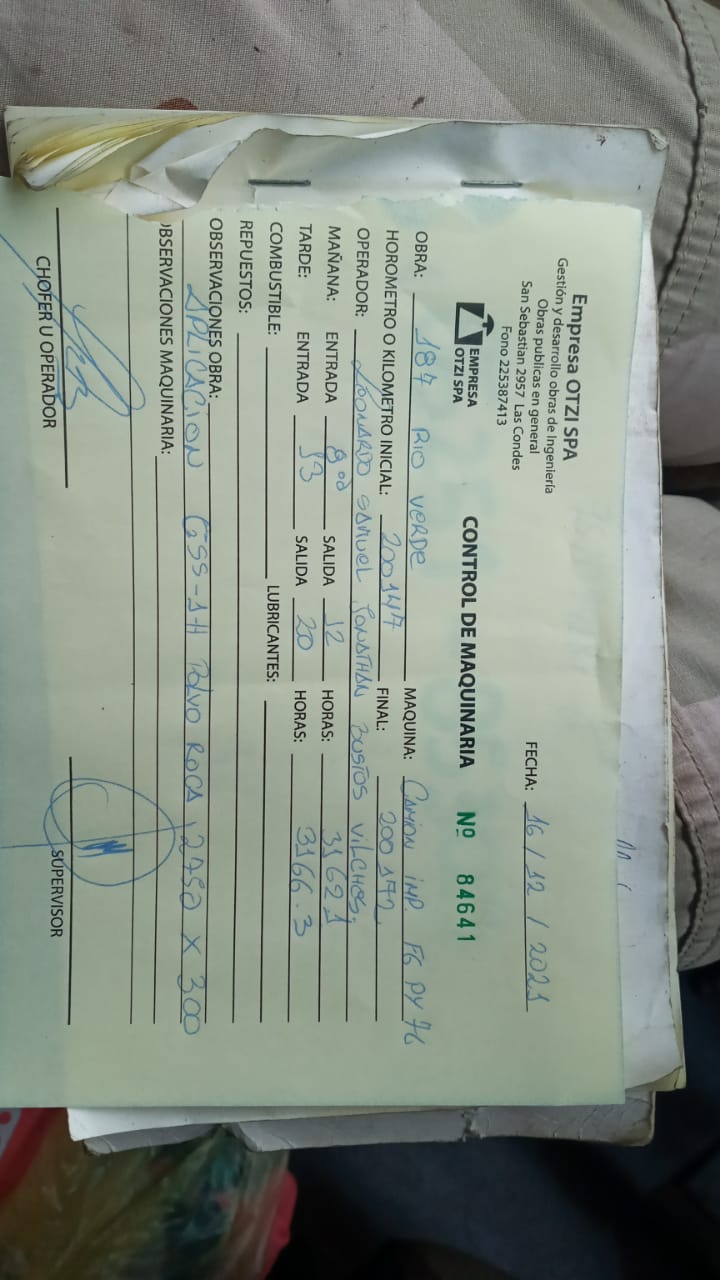 Empresa OTZI SPA
Gestión y desarrollo obras de Ingeniería
Obras publicas en general
San Sebastian 2957 Las Condes
Fono 225387413
FECHA: 16 / 12 / 2021
EMPRESA
OTZI SPA
CONTROL DE MAQUINARIA Nº 84641
OBRA: 187 RIO VERDE MAQUINA: CAMION IMP. FG PY 76
HOROMETRO O KILOMETRO INICIAL: 200147 FINAL: 200172
OPERADOR: LEONARDO SAMUEL JONATHAN BUSTOS VILCHES.
MAÑANA: ENTRADA 8:00 SALIDA 12 HORAS: 3162.1
TARDE: ENTRADA 13 SALIDA 20 HORAS: 3166.3
COMBUSTIBLE: LUBRICANTES:
REPUESTOS:
OBSERVACIONES OBRA:
APLICACION CSS-1-H POLVO ROCA 2750 X 300
OBSERVACIONES MAQUINARIA:
CHOFER U OPERADOR SUPERVISOR